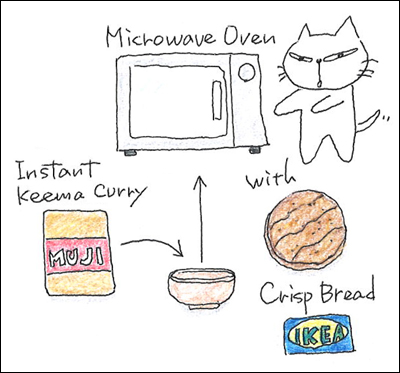 Microwave Oven
Instant
Keema Curry
MUJI
with
Crisp Bread
IKEA